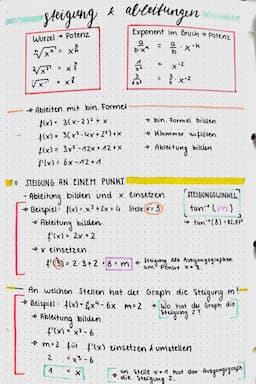 steigung & ableitungen
Wurzel → Potenz
ⁿ√x^m = x^(m/n)
³√x² = x^(2/3)
√x³ = x^(3/2)
Exponent im Bruch → Potenz
a/(b·x^k) = a/b · x^-k
1/x² = x^-2
→ Ableiten mit bin. Formel
f(x) = 3(x-2)² + x → bin. Formel bilden
f(x) = 3(x²-4x+2²)+x → Klammer auflösen
f(x) = 3x²-12x+12+x → Ableitung bilden
f'(x) = 6x-12+1
STEIGUNG AN EINEM PUNKT
- Ableitung bilden und x einsetzen
→ Beispiel: f(x) = x²+2x+4 Stelle x=3
→ Ableitung bilden
f'(x) = 2x+2
→ x einsetzen
f'(3) = 2·3+2 = 8 = m → Steigung des Ausgangsgraphen
am Punkt x=3
STEIGUNGSWINKEL
tan⁻¹(m)
An welchen Stellen hat der Graph die Steigung m?
→ Beispiel: m=2 → Wo hat der Graph die
Steigung 2?
→ Ableitung bilden
→ m=2 für f'(x) einsetzen & umstellen
→ an Stelle x=1 hat der Ausgangsgraph
die Steigung 2.